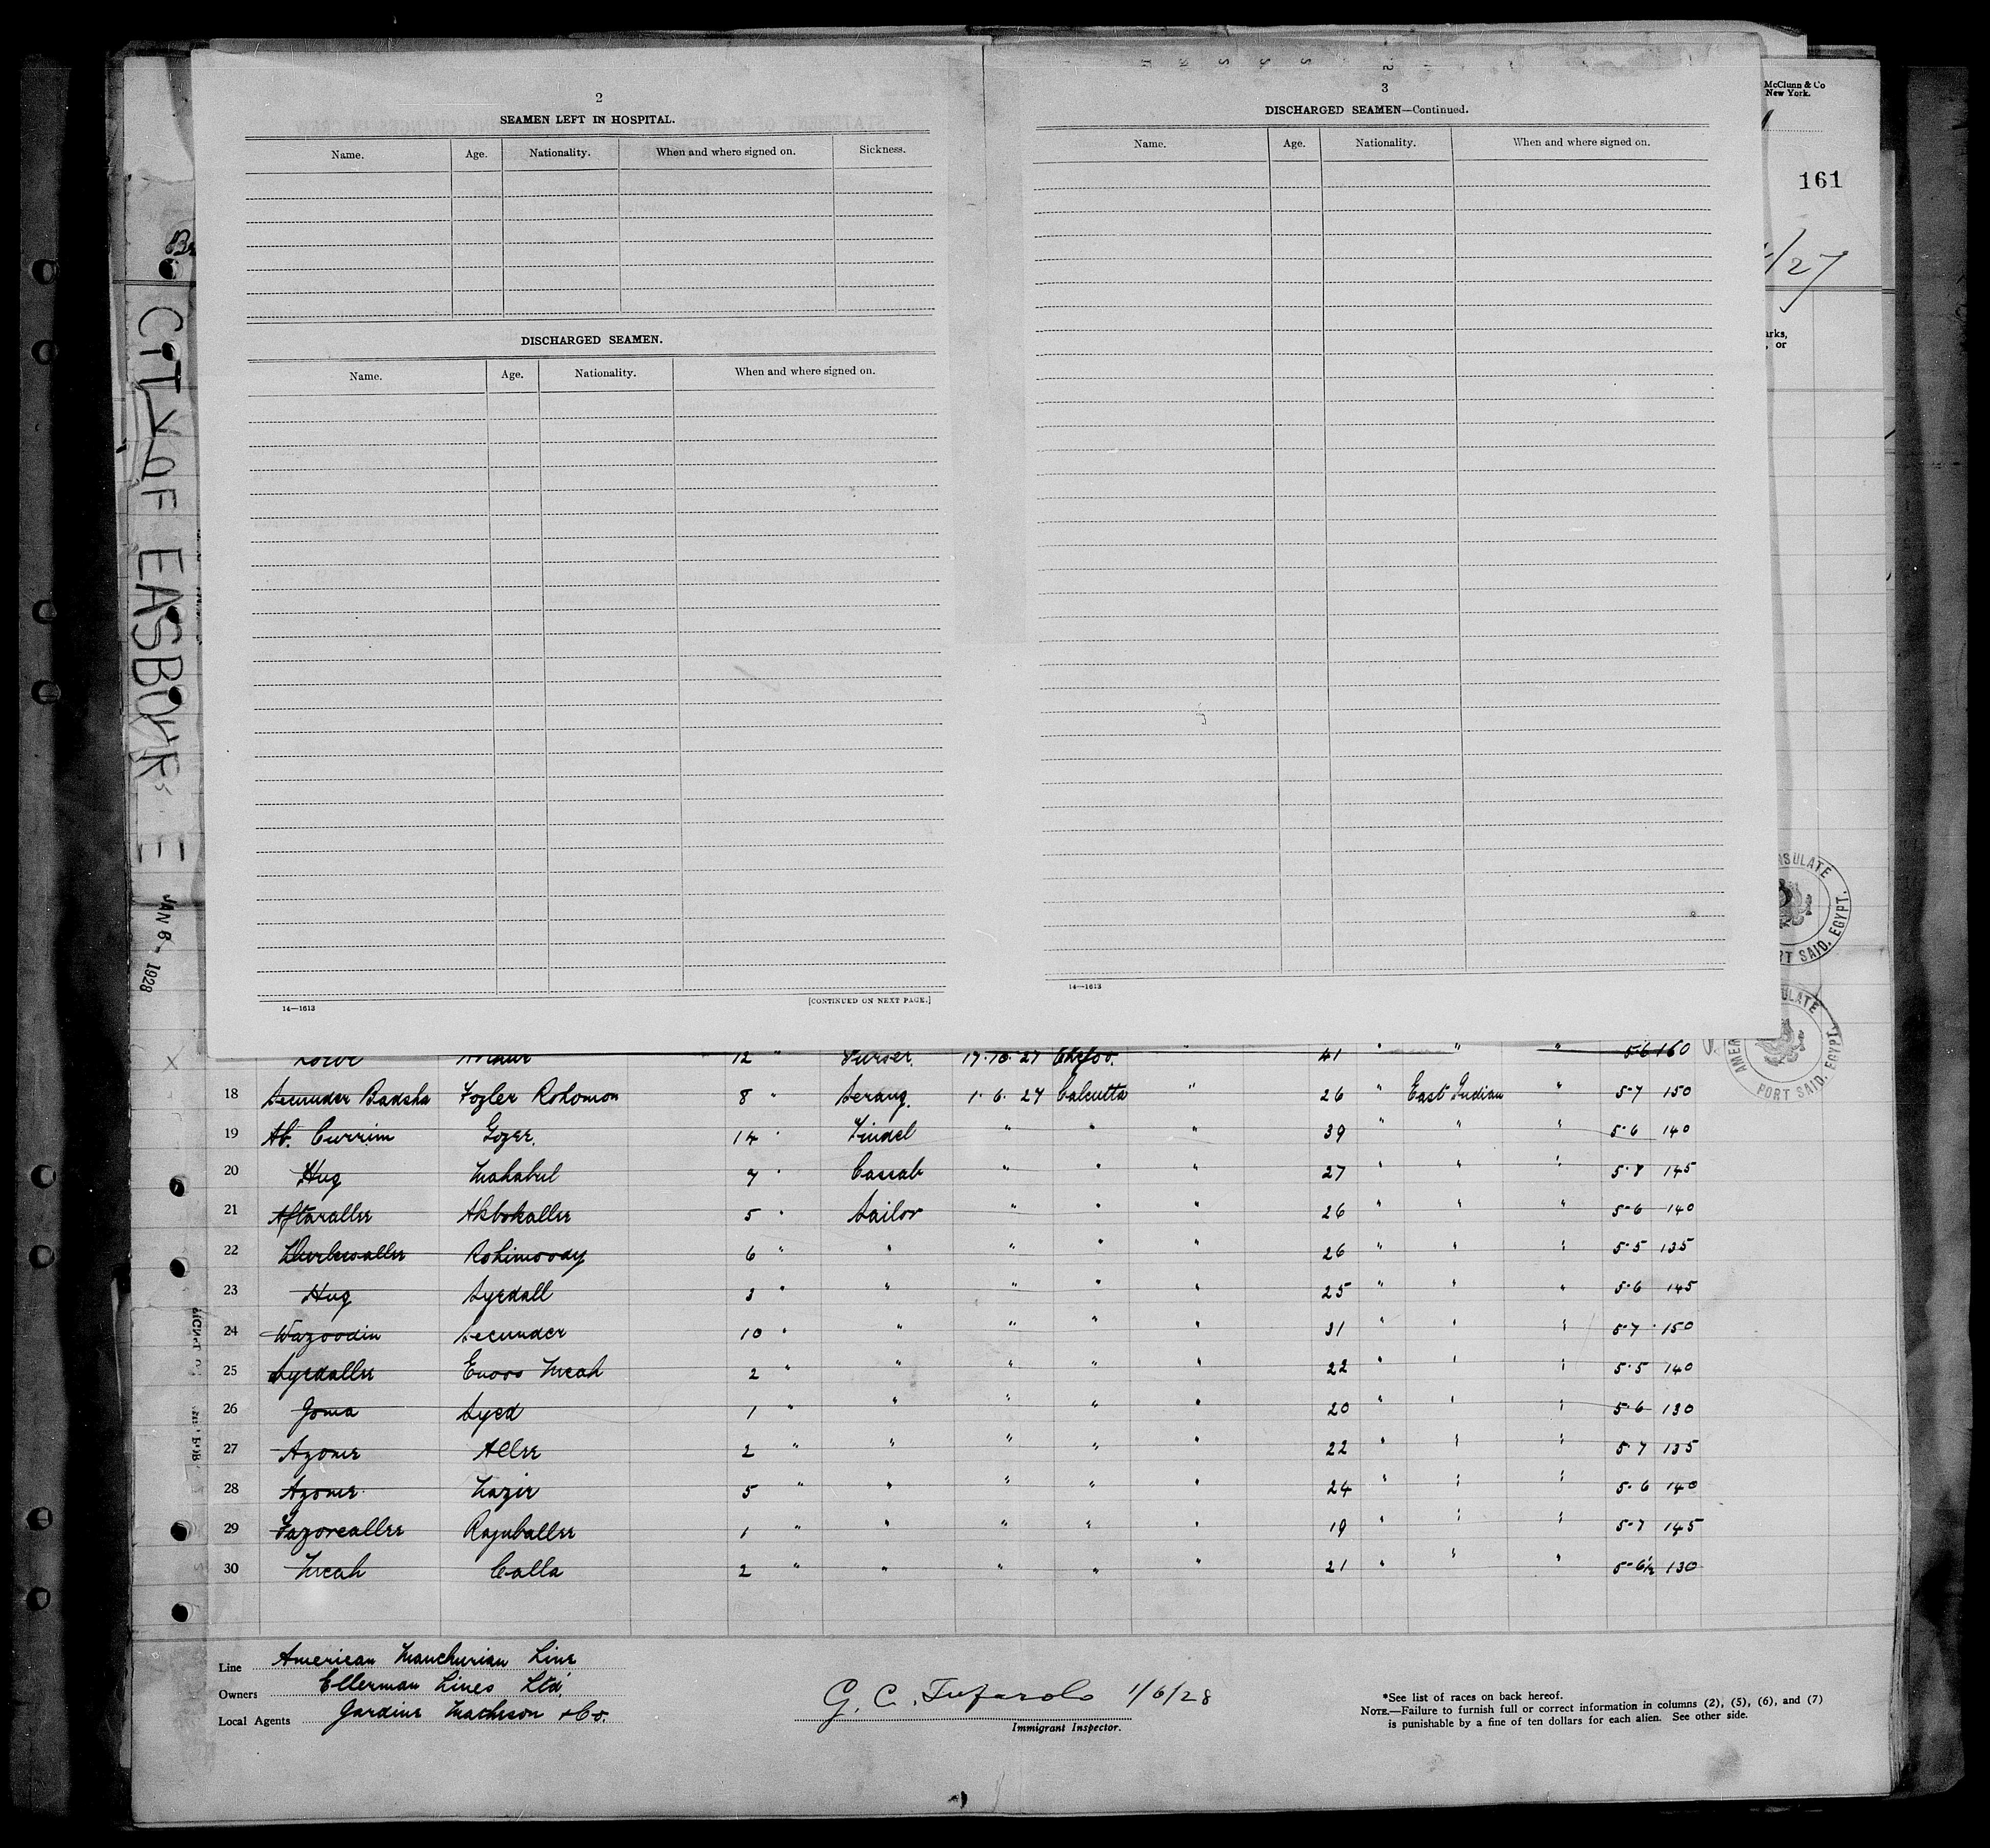 McClunn & Co
New York.
161
/27
arks,
, or
CITY OF EASBOURNE
JAN 6 - 1928
2
SEAMEN LEFT IN HOSPITAL.
Name. Age. Nationality. When and where signed on. Sickness.
DISCHARGED SEAMEN.
Name. Age. Nationality. When and where signed on.
14—1613 [CONTINUED ON NEXT PAGE.]
3
DISCHARGED SEAMEN—Continued.
Name. Age. Nationality. When and where signed on.
14—1613
NSULATE
RT SAID, EGYPT.
AMER ULATE
PORT SAID, EGYPT
12 " Purser. 17.10.27 Chefoo. " 41 " " " 5-6 160
18 Secunder Badsha Fozler Rohomon 8 " Serang. 1. 6. 27 Calcutta " 26 " East Indian " 5-7 150
19 Ab. Currim Gozer. 14 " Tindel " " " 39 " " " 5-6 140
20 Huq Mahabul 7 " Cassab " " " 27 " " " 5-8 145
21 Aftaraller Akbokaller 5 " Sailor " " " 26 " " " 5-6 140
22 Rohimoody 6 " " " " " 26 " " " 5-5 135
23 Huq Syedall 3 " " " " " 25 " " " 5-6 145
24 Wazoodin Secunder 10 " " " " " 31 " " " 5-7 150
25 Syedallee Enoos Meah 2 " " " " " 22 " " " 5-5 140
26 Goma Syed 1 " " " " " 20 " " " 5-6 130
27 Azome Allee 2 " " " " " 22 " " " 5-7 135
28 Azome Nazir 5 " " " " " 24 " " " 5-6 140
29 Fazoreallee Rajuballee 1 " " " " " 19 " " " 5-7 145
30 Meah Calla 2 " " " " " 21 " " " 5-6½ 130
Line American Manchurian Line
Owners Ellerman Lines Ltd.
Local Agents Jardine Matheson & Co.
G. C. Tufarolo 1/6/28
Immigrant Inspector.
*See list of races on back hereof.
NOTE.—Failure to furnish full or correct information in columns (2), (5), (6), and (7)
is punishable by a fine of ten dollars for each alien. See other side.